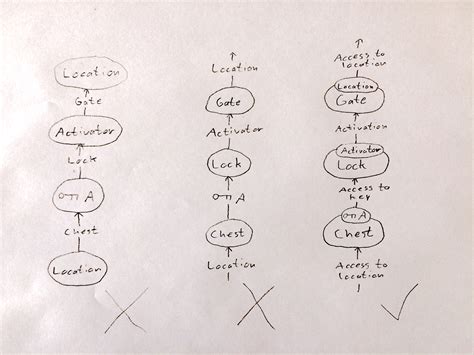 Location
Gate
Activator
Lock
A
Chest
Location
Location
Gate
Activator
Lock
A
Chest
Location
Access to
location
Location
Gate
Activation
Activator
Lock
Access to
key
A
Chest
Access to
location